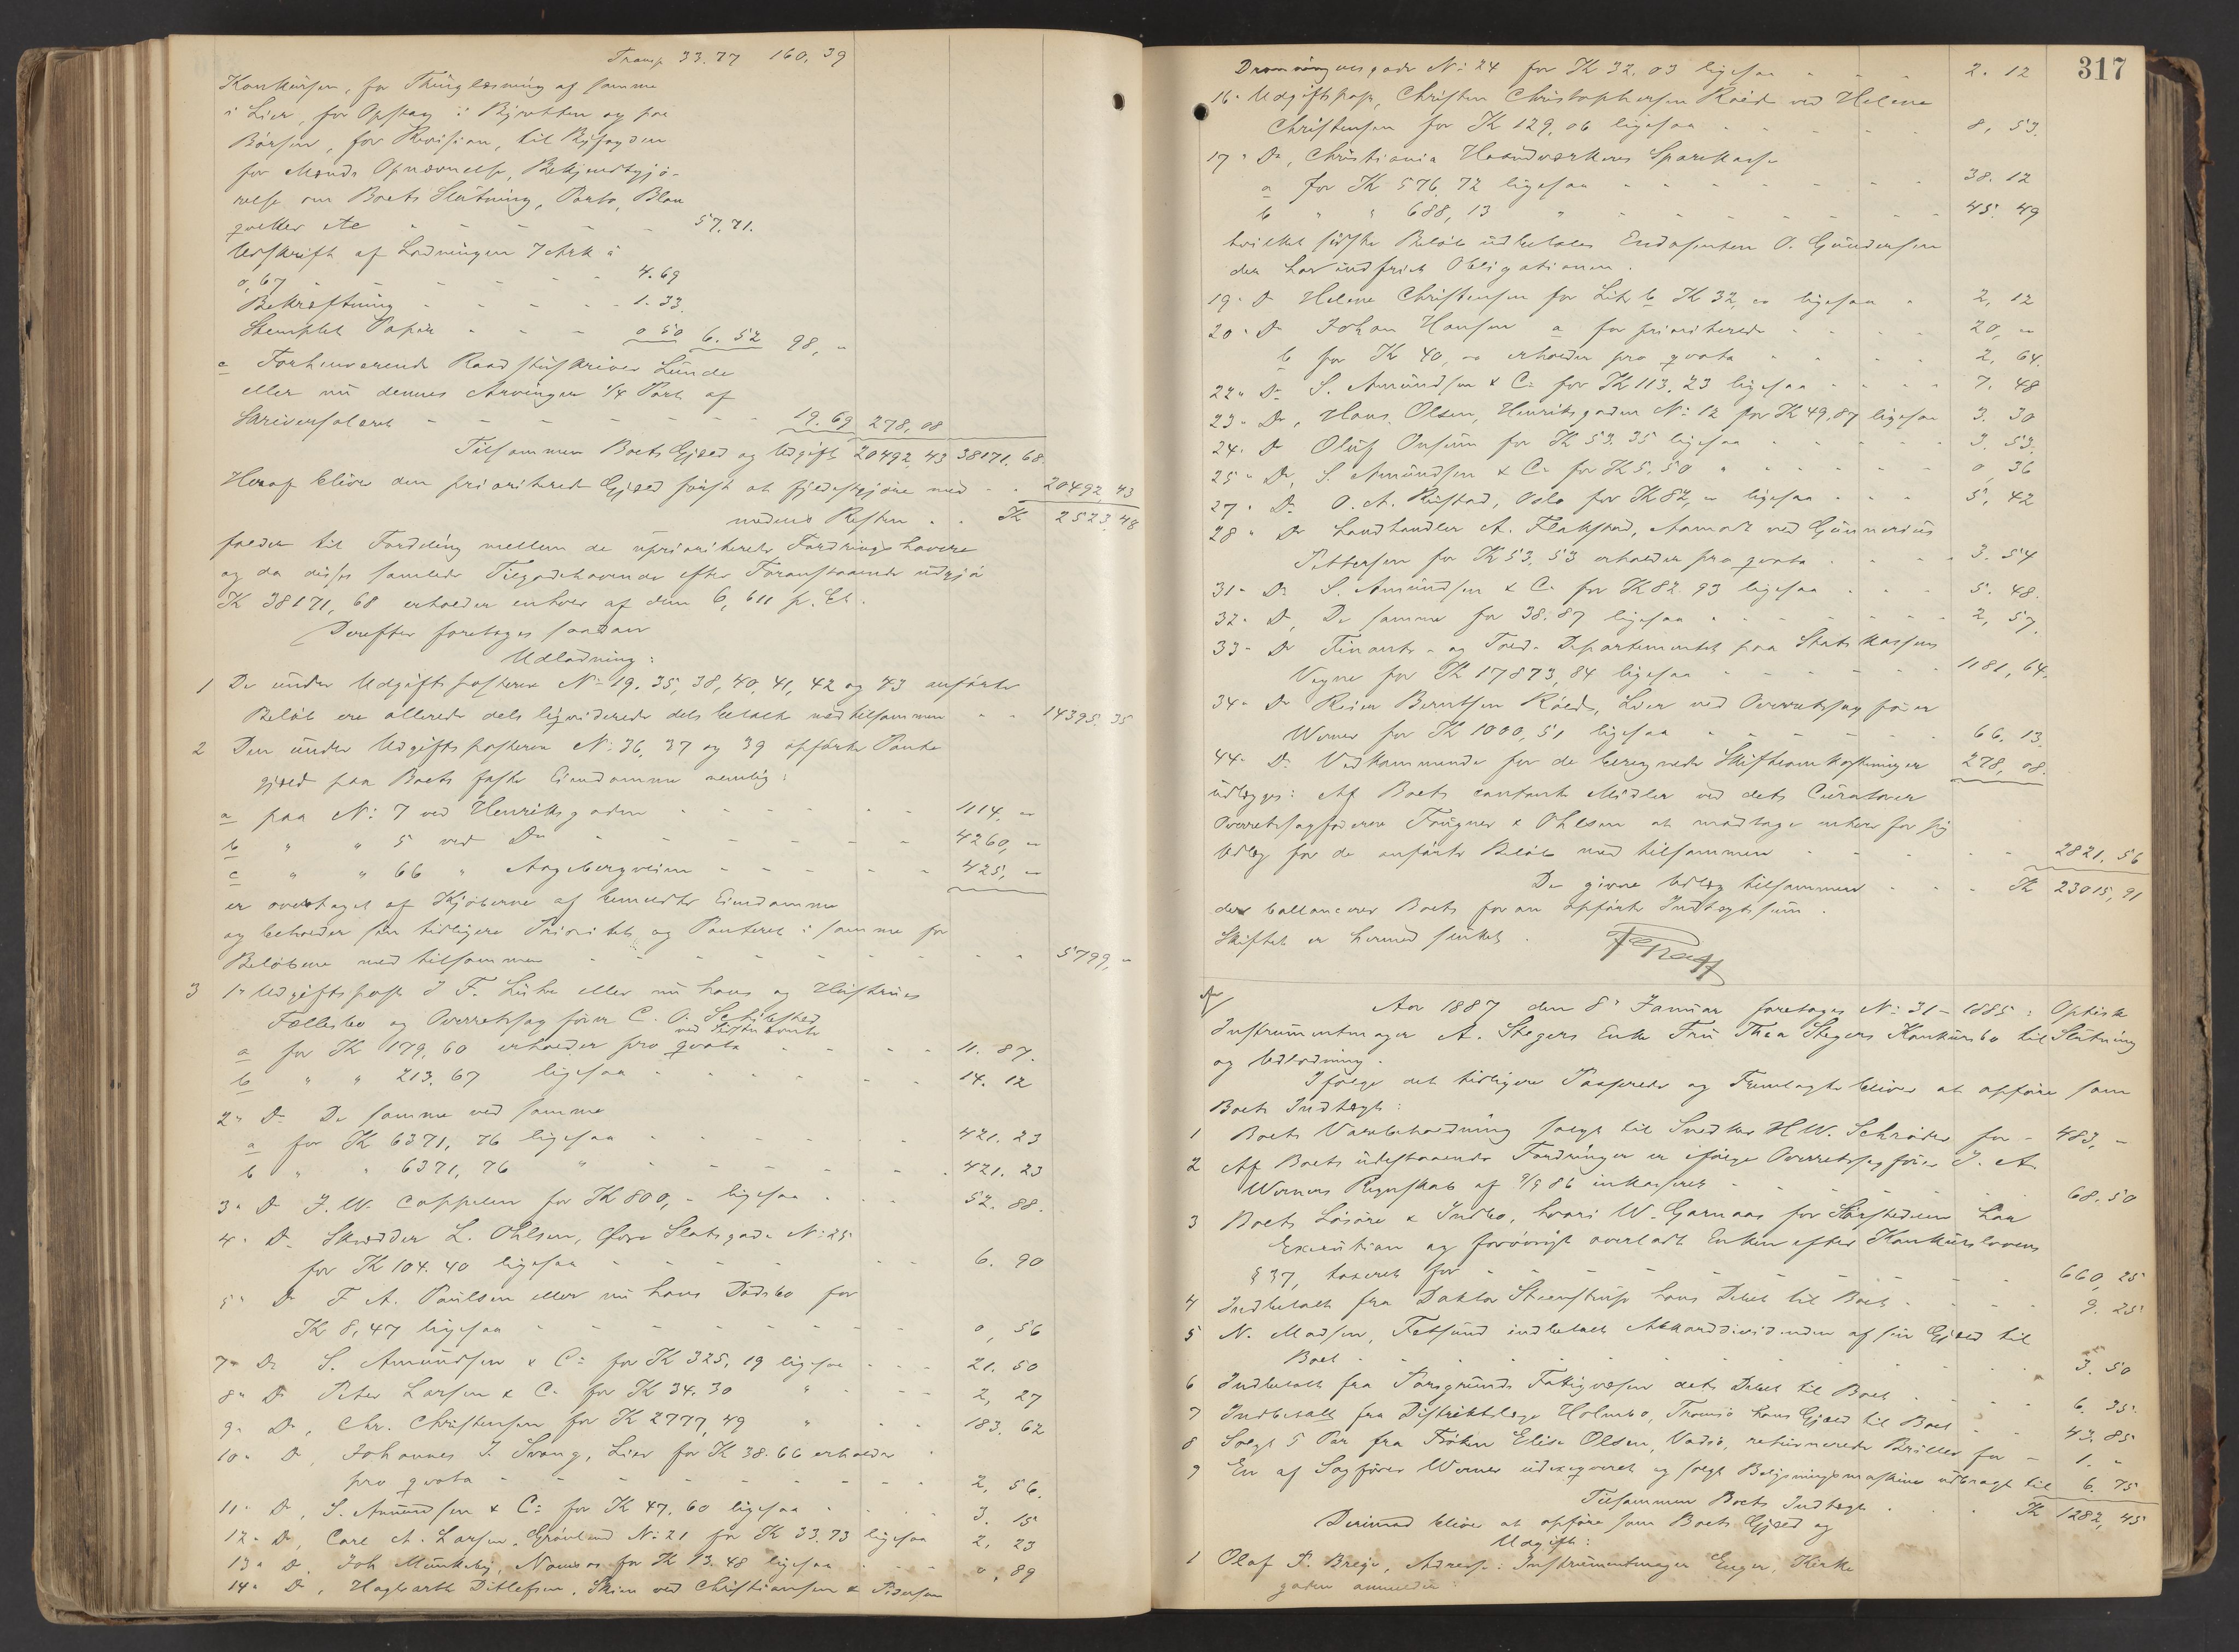 Transp 33.77 160,39
Konkursen, for Thinglæsning af samme
i Lier, for Opslag i Byretten og paa
Børsen, for Revision, til Byfogden
for Mænds Opnævnelse, Bekjendtgjø-
relse om Boets Slutning, Porto, Blan
qvetter etc - - - - - 57,71.
Udskrift af Lodningen 7 Ark à
0,67 - - - - - 4.69
Bekræftning - - - - 1.33.
Stemplet Papir - - - 0 50 6.52 98, "
c Forhenværende Raadstuskriver Lunde
eller nu dennes Arvinger 1/4 Part af
Skriversalæret - - - - - 19.69 278,08
Tilsammen Boets Gjæld og Udgift 20492,43 38171.68.
Heraf bliver den prioriterede Gjæld først at fyldestgjøre med - - 20492,43
medens Resten . . K 2523,48
falder til Fordeling mellem de uprioriterede Fordringshavere
og da disses samlede Tilgodehavende efter Foranstaaende udgjø
K 38171,68 erholder enhver af dem 6,611 p. Ct.
Derefter foretages saadan
Udlodning:
1 De under Udgiftsposterne No 19. 35, 38, 40, 41, 42 og 43 anførte
Beløb ere allerede dels ligviderede dels betalte med tilsammen - - 14395.35
2 Den under Udgiftsposterne No 36, 37 og 39 opførte Pante
gjæld paa Boets faste Eiendomme nemlig:
a paa No 7 ved Henriksgaden - - - - 1114, "
b " " 5 ved Do - - - - 4260, "
c " " 66 " Aagebergveien - - - - 425, "
er overtaget af Kjøberne af bemeldte Eiendomme
og beholder sin tidligere Prioritet og Panteret i samme for
Beløbene med tilsammen - - - - - 5799, "
3 1" Udgiftspost J F. Lühr eller nu hans og Hustrues
Fællesbo og Overretssagfører C. O. Schibsted
ved
a for K 179,60 erholder pro qvota - - - 11. 87.
b " " 213.67 ligesaa - - - - 14. 12
2" Do De samme ved samme
a for K 6371,76 ligesaa - - - - 421. 23
b " " 6371,76 " - - - - 421. 23
3" Do J. W. Cappelen for K 800,- ligesaa - - - 52. 88.
4" Do Skrædder L. Ohlsen, Øvre Slotsgade No 25
for K 104.40 ligesaa - - - - 6. 90
5" Do F A. Paulsen eller nu hans Dødsbo for
K 8,47 ligesaa - - - - 0, 56
7" Do S. Amundsen & Co for K 325,19 ligesaa - - 21. 50
8" Do Peter Larsen & Co for K 34.30 " - - 2, 27
9" Do, Chr. Christensen for K 2777,49 " - - 183. 62
10" Do, Johannes J. Svang, Lier for K 38.66 erholder
pro qvota - - - - - 2, 56.
11" Do, S. Amundsen & Co for K 47.60 ligesaa - - 3. 15
12" Do, Carl A. Larsen, Grønland No 21 for K 33.73 ligesaa 2, 23
13" Do Joh Munkeby, for K 13.48 ligesaa - - 0,89
14" Do, Hagbarth Ditlefsen, Skien ved Christiansen & Pedersen
317
Dronningensgade No 24 for K 32.03 ligesaa - - - 2. 12
16" Udgiftspost, Christen Christophersen Røed ved Helene
Christensen for K 129,06 ligesaa - - - - 8, 53.
17" Do, Christiania Haandværkeres Sparekasse
a for K 576,72 ligesaa - - - - 38. 12
b " " 688,13 " - - - - 45. 49
hvilket sidste Beløb udbetales Endosenten O. Gundersen
der har indfriet Obligationen.
19" Do Helene Christensen for Litr b K 32, " ligesaa - 2, 12
20" Do Johan Hansen a for prioriterede - - - 20, "
b for K 40, " erholder pro qvota - - - 2, 64.
22" Do S. Amundsen & Co for K 113.23 ligesaa - - 7, 48
23" Do, Hans Olsen, Henriksgaden No 12 for K 49,87 ligesaa 3. 30
24" Do Oluf Onsum for K 53.35 ligesaa - - - 3. 53.
25" Do, S. Amundsen & Co for K 5.50 " - - - 0, 36
27" Do O. A. Rustad, Oslo for K 82, " ligesaa - - 5, 42
28" Do Landhandler A. Flakstad, ved Gunnerius
Pettersen for K 53.53 erholder pro qvota - - - 3. 54
31" Do S. Amundsen & Co for K 82.93 ligesaa - - - 5. 48.
32" Do, De samme for 38.87 ligesaa - - - - 2, 57.
33" Do Finants- og Told-Departementet paa Statskassens
Vegne for K 17873,84 ligesaa - - - - 1181, 64.
34" Do Reier Berntsen Røed, Lier ved Overretssagfører
Werner for K 1000,51 ligesaa - - - - 66. 13.
44" Do Vedkommende for de beregnede Skifteomkostninger 278, 08.
udlægges: Af Boets contante Midler ved dets Curatorer
Overretssagførerne Fougner & Ohlsen at modtage enhver for sig
Udlæg for de anførte Beløb med tilsammen - - - - 2821,56
De givne Udlæg tilsammen - - - K 23015,91
der ballancerer Boets foran opførte Indtægtssum.
Skiftet er hermed sluttet.
Aar 1887 den 8de Januar foretages No 31 - 1885: Optisk
Instrumentmager A. Stegers Enke Fru Thea Stegers Konkursbo til Slutning
og Udlodning.
Ifølge det tidligere Passerede og Fremlagte bliver at opføre som
Boets Indtægt:
1 Boets Varebeholdning solgt til Snedker H W. Schrøder for - 483, "
2 Af Boets udestaaende Fordringer er ifølge Overretssagfører J. A.
Werners Regnskab af 9/9 86 inkasseret - - - - 68.50
3 Boets Løsøre & Indbo, hvori W. Garnaas for Størstedelen har
Execution og forøvrigt overladt Enken efter Konkurslovens
§ 37, taxeret for - - - - - 660,25
4 Indbetalt fra Doktor Steenstrup hans Debet til Boet - - - 9.25
5 N. Madsen, Fetsund indbetalt Akkorddividenden af sin Gjæld til
Boet - - - - - 3.50
6 Indbetalt fra Porsgrunds Fattigvæsen dets Debet til Boet - - 6.35
7 Indbetalt fra Distriktslæge Holmbo, Tromsø hans Gjæld til Boet - 43.85
8 Solgt 5 Par fra Frøken Elise Olsen, Vadsø, returnerede Briller for - 1. "
9 En af Sagfører Werner og solgt udbragt til 6.75
Tilsammen Boets Indtægt - - K 1282,45
Derimod bliver at opføre som Boets Gjæld og
Udgift:
1 Olaf P. Breje, Adresse: Instrumentmager Enger, Kirke
gaden anmelder: